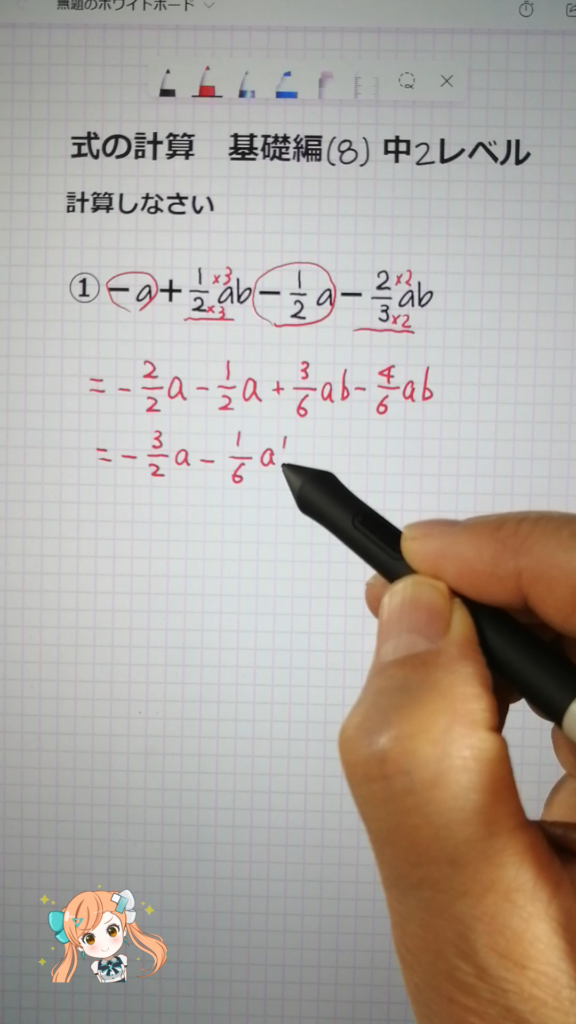 無題のホワイトボード
式の計算 基礎編(8) 中2レベル
計算しなさい
① -a + 1/2 ×3 ×3 ab - 1/2 a - 2/3 ×2 ×2 ab
= - 2/2 a - 1/2 a + 3/6 ab - 4/6 ab
= - 3/2 a - 1/6 a